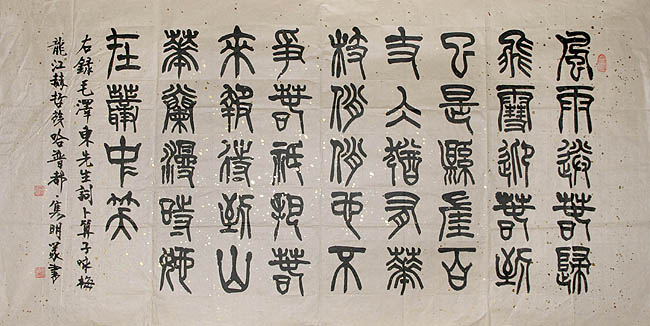 風雨送春歸
飛雪迎春到
已是縣崖百
丈仌猶有華
枝俏俏也不
爭春祇把春
來報待到山
華蘭漫時她
在叢中笑
右錄毛澤東先生詞卜算子咏梅
龍江赫哲族哈普都雋明篆書